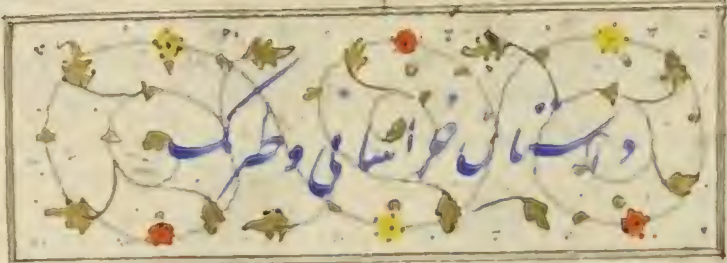 داستان خراسانی و طرک